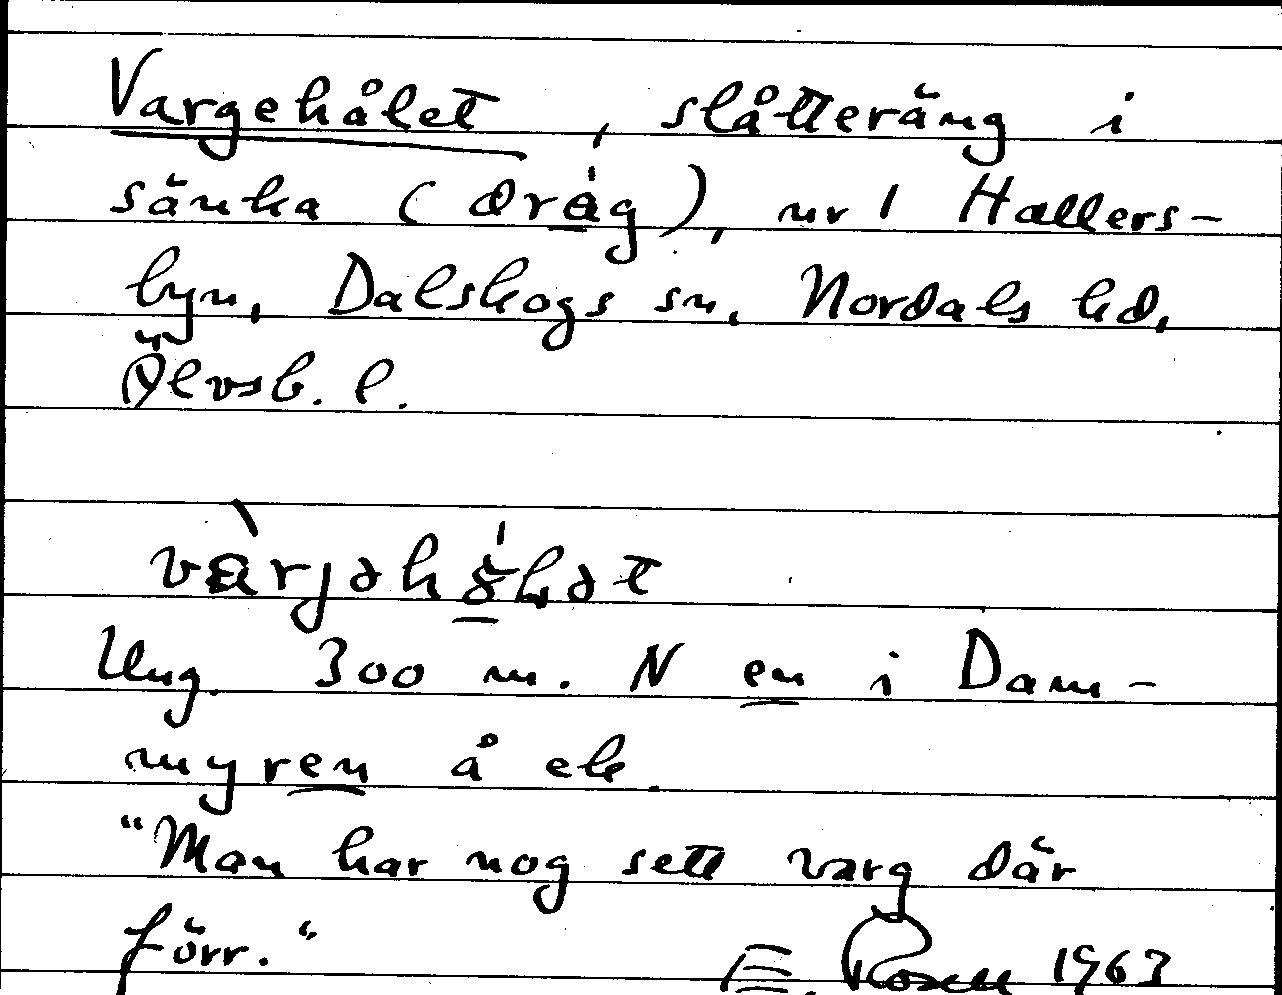 Vargehålet, slåtteräng i
sänka (dråg), nr 1 Hallers-
byn, Dalskogs sn, Nordals hd,
Älvsb. l.
Ung. 300 m. N en i Dam-
myren å ek.
"Man har nog sett varg där
förr." E. Rosell 1963